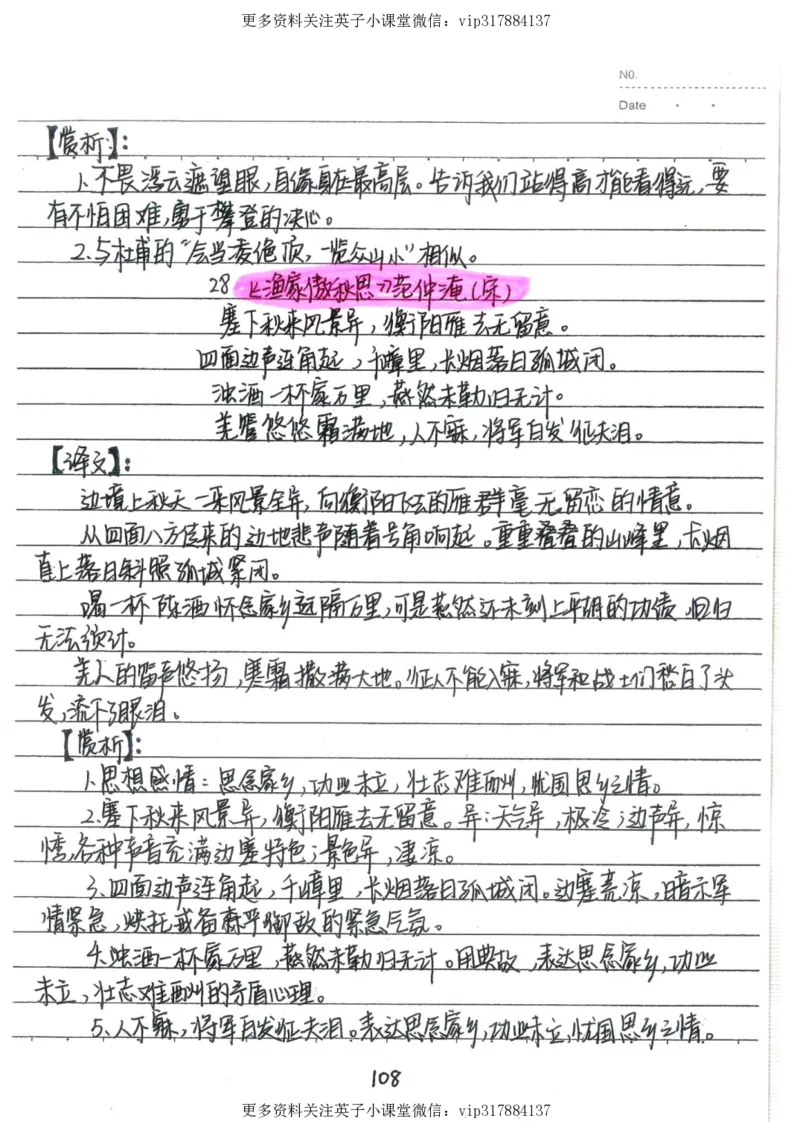 更多资料关注英子小课堂微信：vip317884137
NO.
Date
【赏析】：
1、不畏浮云遮望眼，自缘身在最高层。告诉我们站得高才能看得远，要
有不怕困难，勇于攀登的决心。
2.与杜甫的“会当凌绝顶，一览众山小”相似。
28 《渔家傲秋思》范仲淹（宋）
塞下秋来风景异，衡阳雁去无留意。
四面边声连角起，千嶂里，长烟落日孤城闭。
浊酒一杯家万里，燕然未勒归无计。
羌管悠悠霜满地，人不寐，将军白发征夫泪。
【译文】：
边境上秋天一来风景全异，向衡阳飞去的雁群毫无留恋的情意。
从四面八方传来的边地悲声随着号角响起。重重叠叠的山峰里，长烟
直上落日斜照孤城紧闭。
喝一杯陈酒怀念家乡远隔万里，可是燕然还未刻上平胡的功债，回归
无法预计。
羌人的笛声悠扬，寒霜撒满大地。征人不能入寐，将军和战士们愁白了头
发，流下了眼泪。
【赏析】：
1.思想感情：思念家乡，功业未立，壮志难酬，忧国思乡之情。
2.塞下秋来风景异，衡阳雁去无留意。异：天气异，极冷；边声异，惊
情，各种声音充满边塞特色；景色异，凄凉。
3、四面边声连角起，千嶂里，长烟落日孤城闭。边塞荒凉，暗示军
情紧急，烘托戒备森严御敌的紧急气氛。
4.浊酒一杯家万里，燕然未勒归无计。用典故，表达思念家乡，功业
未立，壮志难酬的矛盾心理。
5、人不寐，将军白发征夫泪。表达思念家乡，功业未立，忧国思乡之情。
108
更多资料关注英子小课堂微信：vip317884137